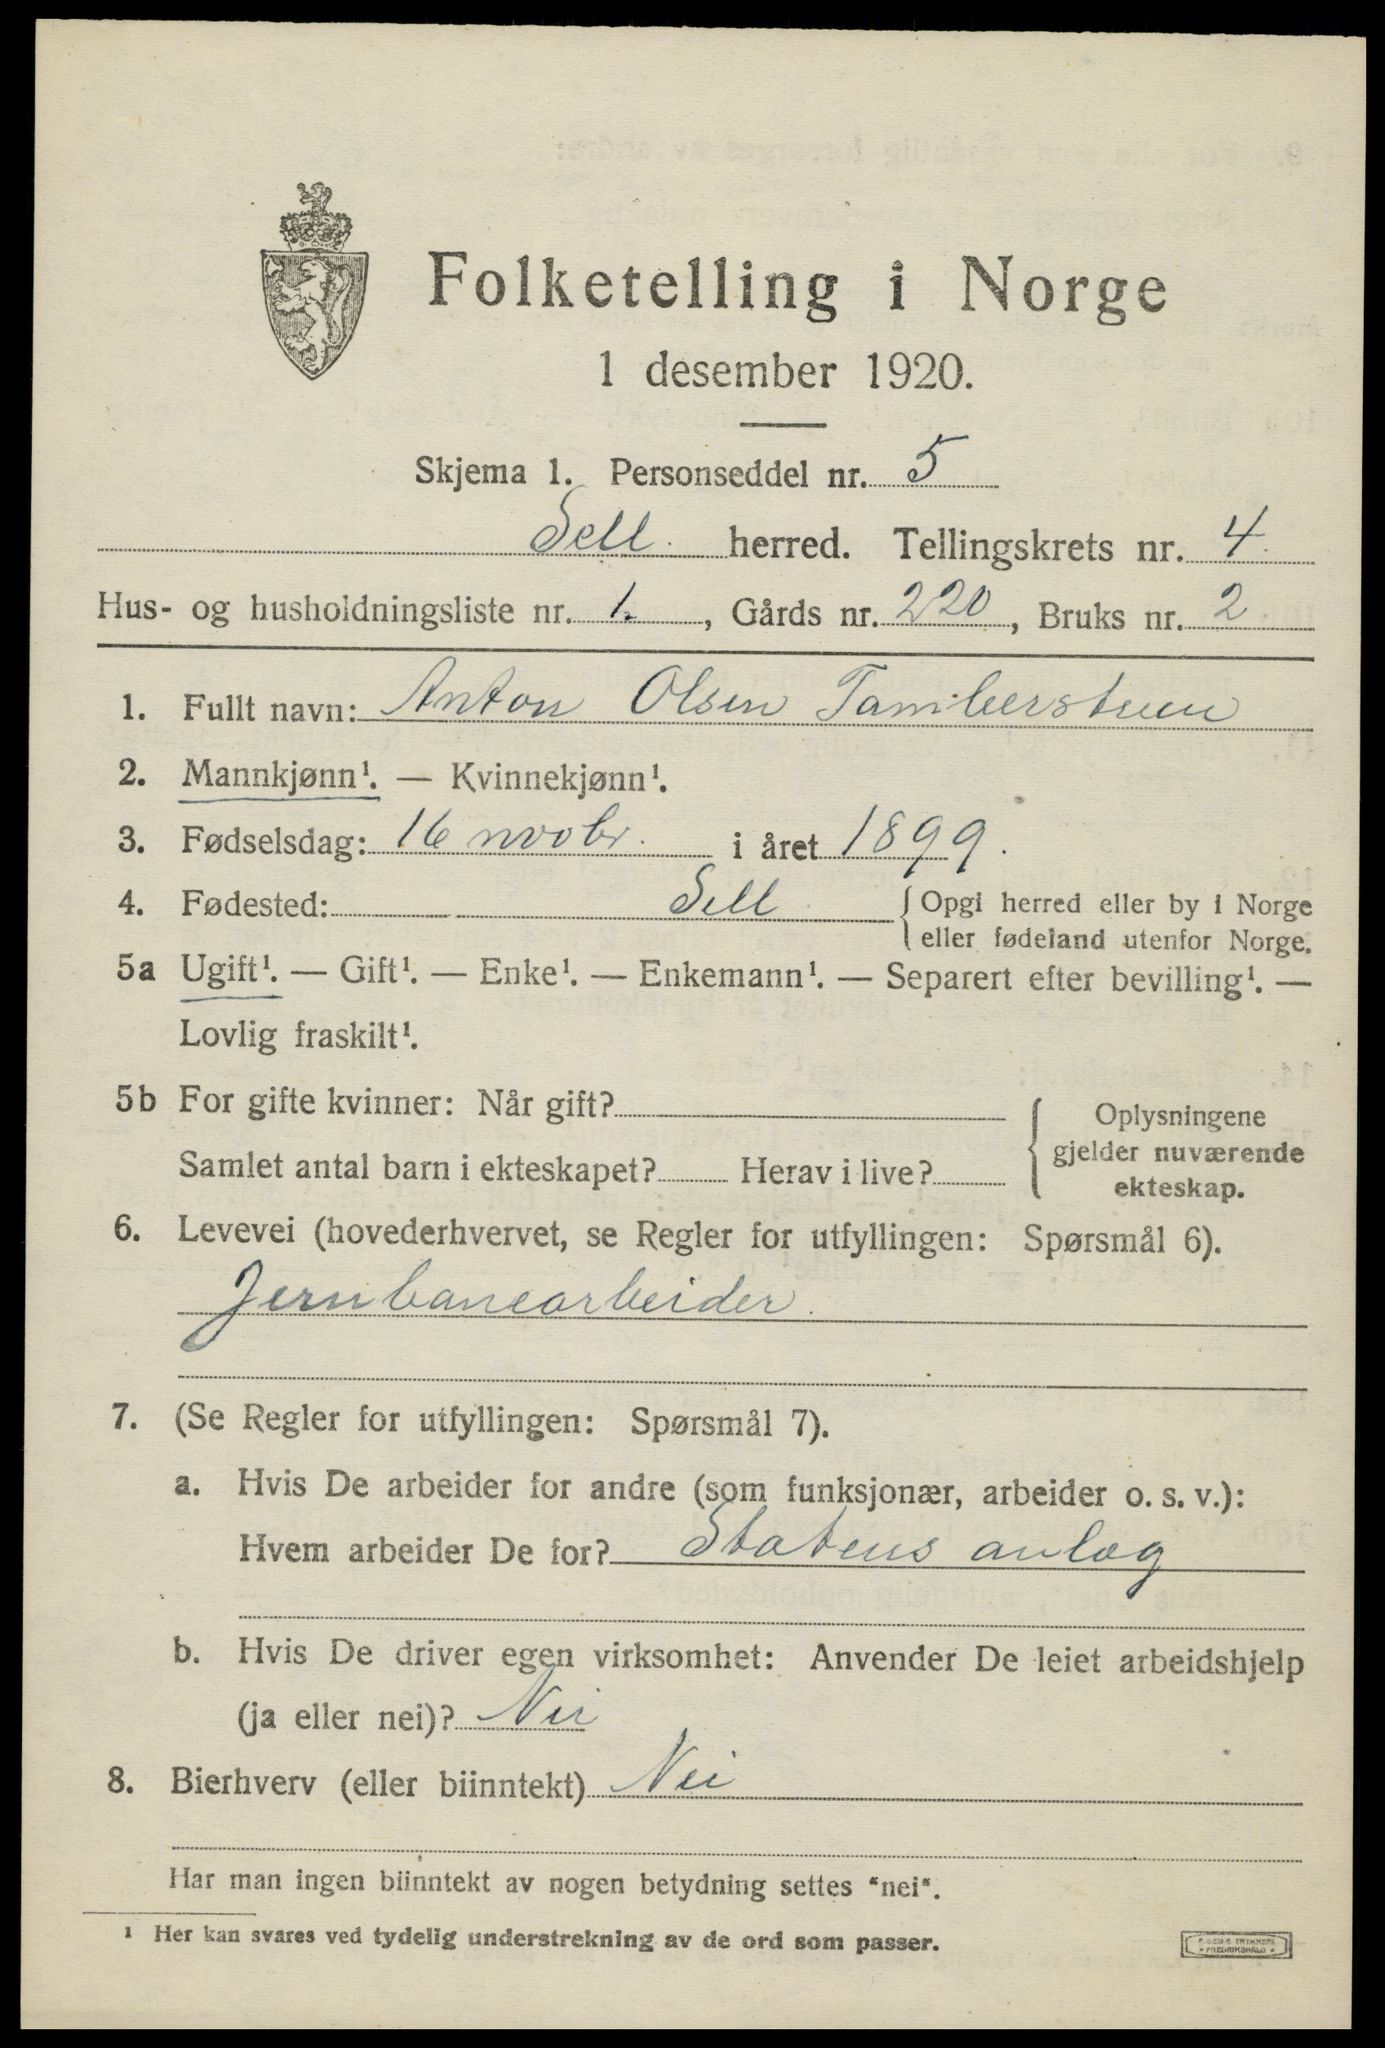 Folketelling i Norge
1 desember 1920.
Skjema 1. Personseddel nr. 5
Sell herred. Tellingskrets nr. 4
Hus- og husholdningsliste nr. 1., Gårds nr. 220, Bruks nr. 2
1. Fullt navn: Anton Olsen Tamberstuen
2. Mannkjønn¹. — Kvinnekjønn¹.
3. Fødselsdag: 16 novbr. i året 1899.
4. Fødested: Sell {Opgi herred eller by i Norge
eller fødeland utenfor Norge.
5a Ugift¹. — Gift¹. — Enke¹. — Enkemann¹. — Separert efter bevilling¹. —
Lovlig fraskilt¹.
5b For gifte kvinner: Når gift?
Samlet antal barn i ekteskapet? Herav i live?
Oplysningene
gjelder nuværende
ekteskap.
6. Levevei (hovederhvervet, se Regler for utfyllingen: Spørsmål 6).
Jernbanearbeider.
7. (Se Regler for utfyllingen: Spørsmål 7).
a. Hvis De arbeider for andre (som funksjonær, arbeider o. s. v.):
Hvem arbeider De for? Statens anlæg
b. Hvis De driver egen virksomhet: Anvender De leiet arbeidshjelp
(ja eller nei)? Nei
8. Bierhverv (eller biinntekt) Nei
Har man ingen biinntekt av nogen betydning settes "nei".
¹ Her kan svares ved tydelig understrekning av de ord som passer.
TRYKKERI
FREDRIKSHALD